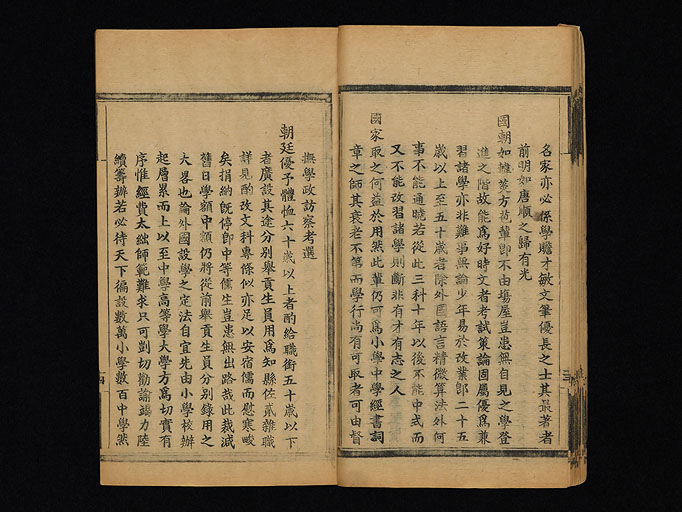 名家亦必係學贍才敏文筆優長之士其最著者
前明如唐順之歸有光
國朝如韓菼方苞輩卽不由場屋豈患無自見之學登
進之階故能爲好時文者考試策論固屬優爲兼
習諸學亦非難事無論少年易於改業卽二十五
歲以上至五十歲者除外國語言精微算法外何
事不能通曉若從此三科十年以後不能中式而
又不能改習諸學則斷非有才有志之人
國家取之何益於用然此輩仍可爲小學中學經書詞
章之師其衰老不第而學行尚有可取者可由督
撫學政訪察考選
朝廷優予體恤六十歲以上者酌給職銜五十歲以下
者廣設其途分別舉貢生員用爲知縣佐貳雜職
詳見酌改文科專條似亦足以安宿儒而慰寒畯
矣捐納旣停卽中等儒生豈患無出路哉此裁減
舊日學額中額仍將從前舉貢生員分別錄用之
大畧也論外國設學之定法自宜先由小學校辦
起層累而上以至中學高等學大學方爲切實有
序惟經費太絀師範難求只可剴切勸諭竭力陸
續籌辦若必待天下徧設數萬小學數百中學然